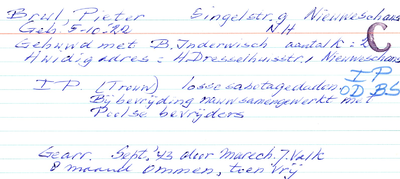 Brul, Pieter Singelstr. 9 Nieuweschans
Geb. 5-10-22 N.H.
Gehuwd met B. Inderwisch aantal k = 2 C
Huidig adres = H. Dresselhuisstr., Nieuweschans
IP
IP (Trouw) losse sabotagedaden OD BS
Bij bevrijding nauw samengewerkt met
Poolse bevrijders
Gearr. Sept. '43 door Marech. J. Valk
8 maand Ommen, toen vrij